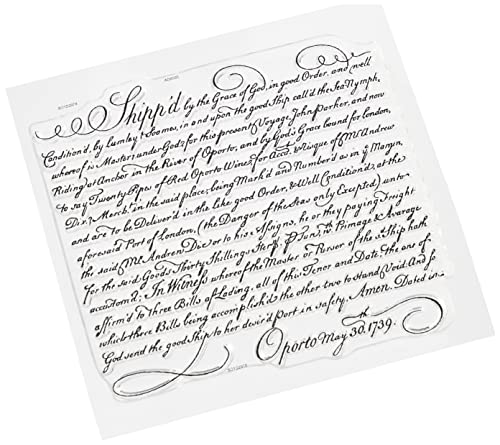 Shipp'd by the Grace of God, in good Order, and well
Condition'd, by Lumley & Soames, in and upon the good Ship call'd the Sea-Nymph,
whereof is Master under God, for this present Voyage, John Parker, and now
Riding at Anchor in the River of Oporto, and by God's Grace bound for London,
to say Twenty Pipes of Red Oporto Wine, for Acco. & Risque of Mr. Andrew
Dix, Merch. in the said place; being Mark'd and Number'd as in ye Margn,
and are to be Deliver'd in the like good Order, & Well Condition'd, at the
aforesaid Port of London, (the Danger of the Seas only Excepted) unto
the said Mr. Andrew Dix or to his Assigns, he or they paying Freight
for the said Goods Thirty Shillings Sterg. p. Tun, wth. Primage & Avarage
accustom'd: In Witness whereof the Master or Purser of the sd. Ship hath
affirm'd to Three Bills of Lading, all of this Tenor and Date; the one of
which three Bills being accomplish'd the other two to stand Void. And so
God send the good Ship to her desir'd Port in safety. Amen. Dated in
Oporto May 30.th 1739.